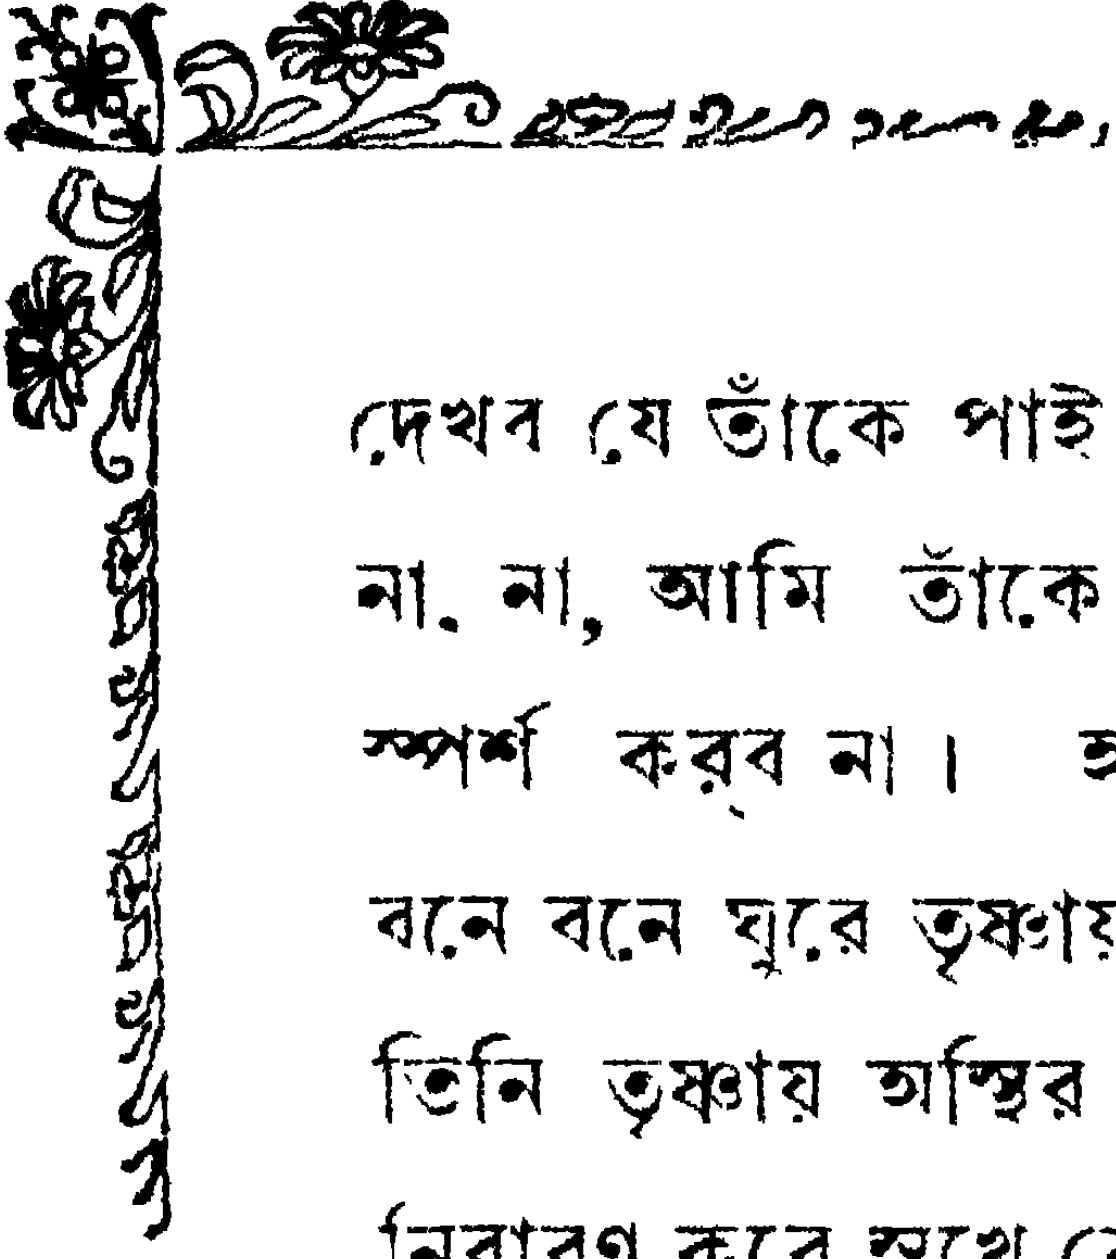 দেখব যে তাঁকে পাই
না. না, আমি তাঁকে
স্পর্শ কর্ব না।
বনে বনে ঘুরে তৃষ্ণায়
তিনি তৃষ্ণায় অস্থির
নিবারণ করে সুখে